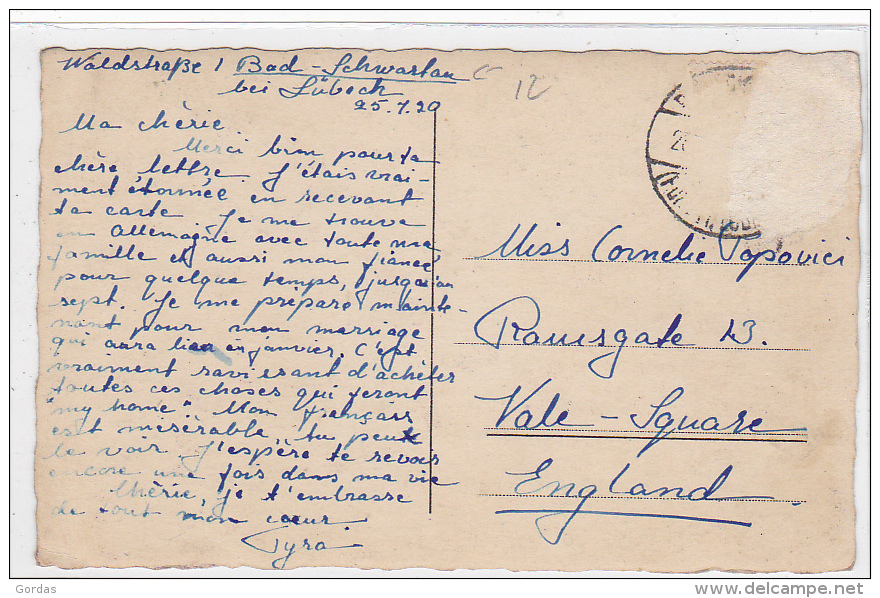 Waldstraße 1 Bad-Schwartau
bei Lübeck
25.7.29
12
Ma chérie.
Merci bien pour ta
chère lettre. J'étais vrai-
ment étonnée en recevant
ta carte. Je me trouve
en Allemagne avec toute ma
famille et aussi mon fiancé
pour quelque temps, jusqu'au
sept. Je me prépare mainte-
nant pour mon marriage
qui aura lieu en janvier. C'est
vraiment ravissant d'achèter
toutes ces choses qui feront
"my home". Mon français
est misérable, tu peux
le voir. J'espère te revoir
encore une fois dans ma vie
Chérie, je t'embrasse
de tout mon cœur.
Tyra
Miss Cornelie Popovici
Ramsgate 23.
Vale-Square
England
Gordas
delcampe.net